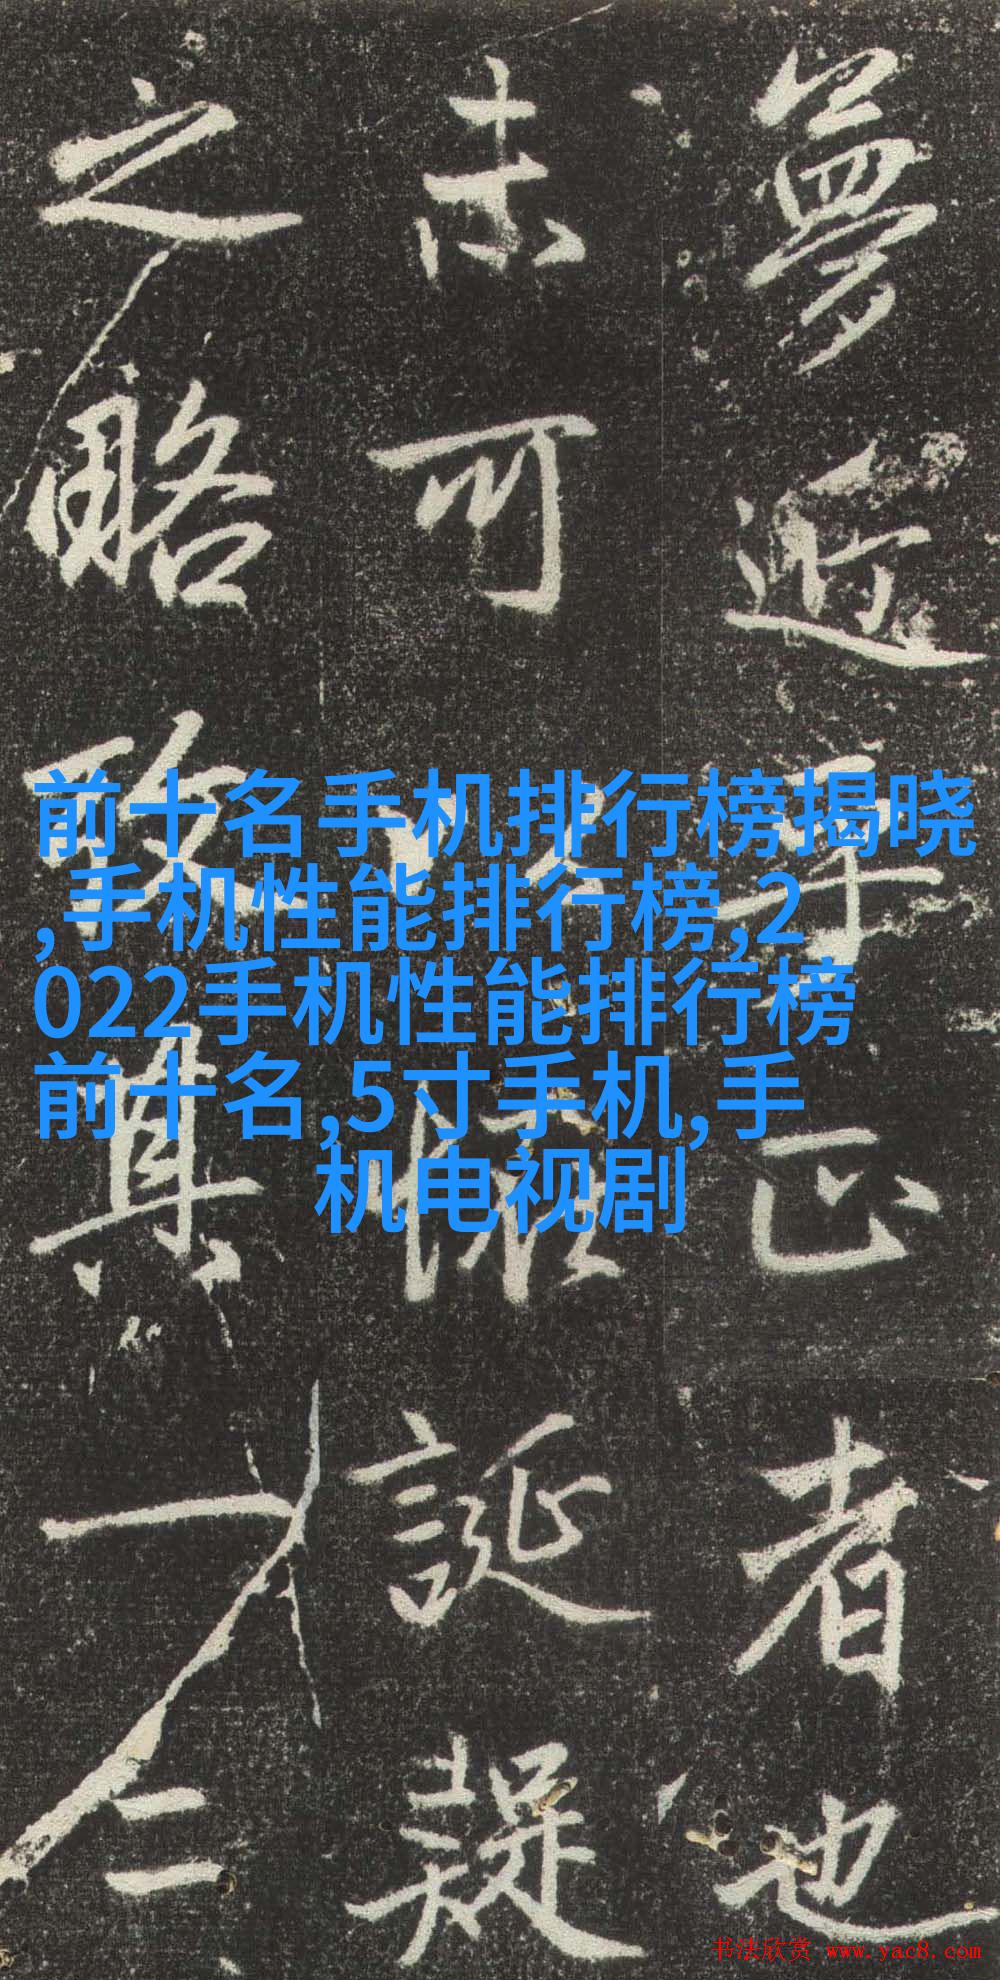 夢近乎正者也
未可
誕疑
之略致其一仁
前十名手机排行榜揭晓
,手机性能排行榜,2
022手机性能排行榜
前十名,5寸手机,手
机电视剧
书法欣赏 www.yac8.com